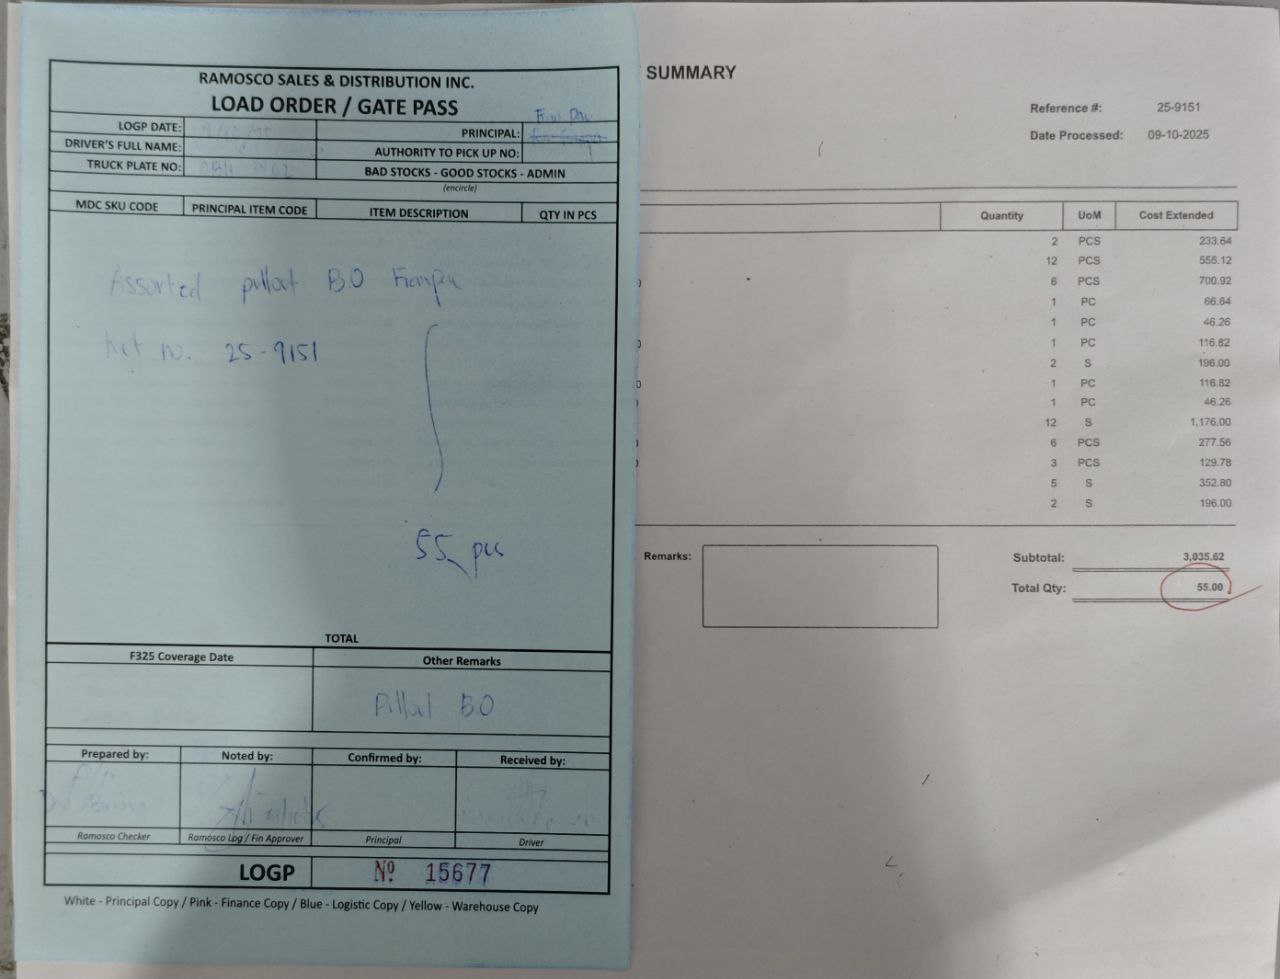 RAMOSCO SALES & DISTRIBUTION INC.
LOAD ORDER / GATE PASS
LOGP DATE:
PRINCIPAL:
DRIVER'S FULL NAME:
AUTHORITY TO PICK UP NO:
TRUCK PLATE NO:
BAD STOCKS - GOOD STOCKS - ADMIN
(encircle)
MDC SKU CODE PRINCIPAL ITEM CODE ITEM DESCRIPTION QTY IN PCS
Assorted pullout B.O
Ref no. 25-9151
55 pcs
TOTAL
F325 Coverage Date Other Remarks
Pullout B.O
Prepared by: Noted by: Confirmed by: Received by:
Ramosco Checker Ramosco Log / Fin Approver Principal Driver
LOGP Nº 15677
White - Principal Copy / Pink - Finance Copy / Blue - Logistic Copy / Yellow - Warehouse Copy
SUMMARY
Reference #: 25-9151
Date Processed: 09-10-2025
Quantity UoM Cost Extended
2 PCS 233.64
12 PCS 555.12
6 PCS 700.92
1 PC 66.64
1 PC 46.26
1 PC 116.82
2 S 196.00
1 PC 116.82
1 PC 46.26
12 S 1,176.00
6 PCS 277.56
3 PCS 129.78
5 S 352.80
2 S 196.00
Remarks:
Subtotal: 3,035.62
Total Qty: 55.00